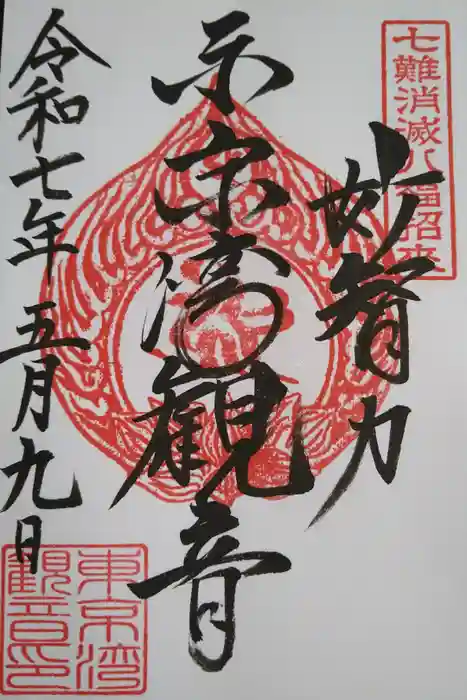 七難消滅八福招来
妙智力
東京湾観音
令和七年五月九日
東京湾
観音印